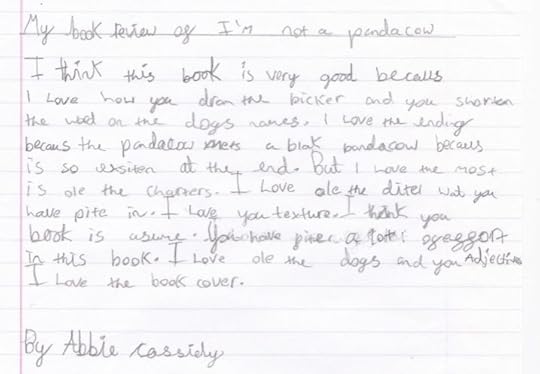 My book review of I'm not a pandacow
I think this book is very good becaus
I Love how you dran the picker and you shorten
the wed on the dogs names. I Love the ending
becaus the pandacow meets a blak pandacow becaus
is so exsiten at the end. But I Love the most
is ole the charters. I Love ole the ditel wat you
have pite in. I Love you texture. I think you
book is asume. You have piter a lott i
In this book. I Love ole the dogs and you Adjectives
I Love the book cover.
By Abbie Cassidy